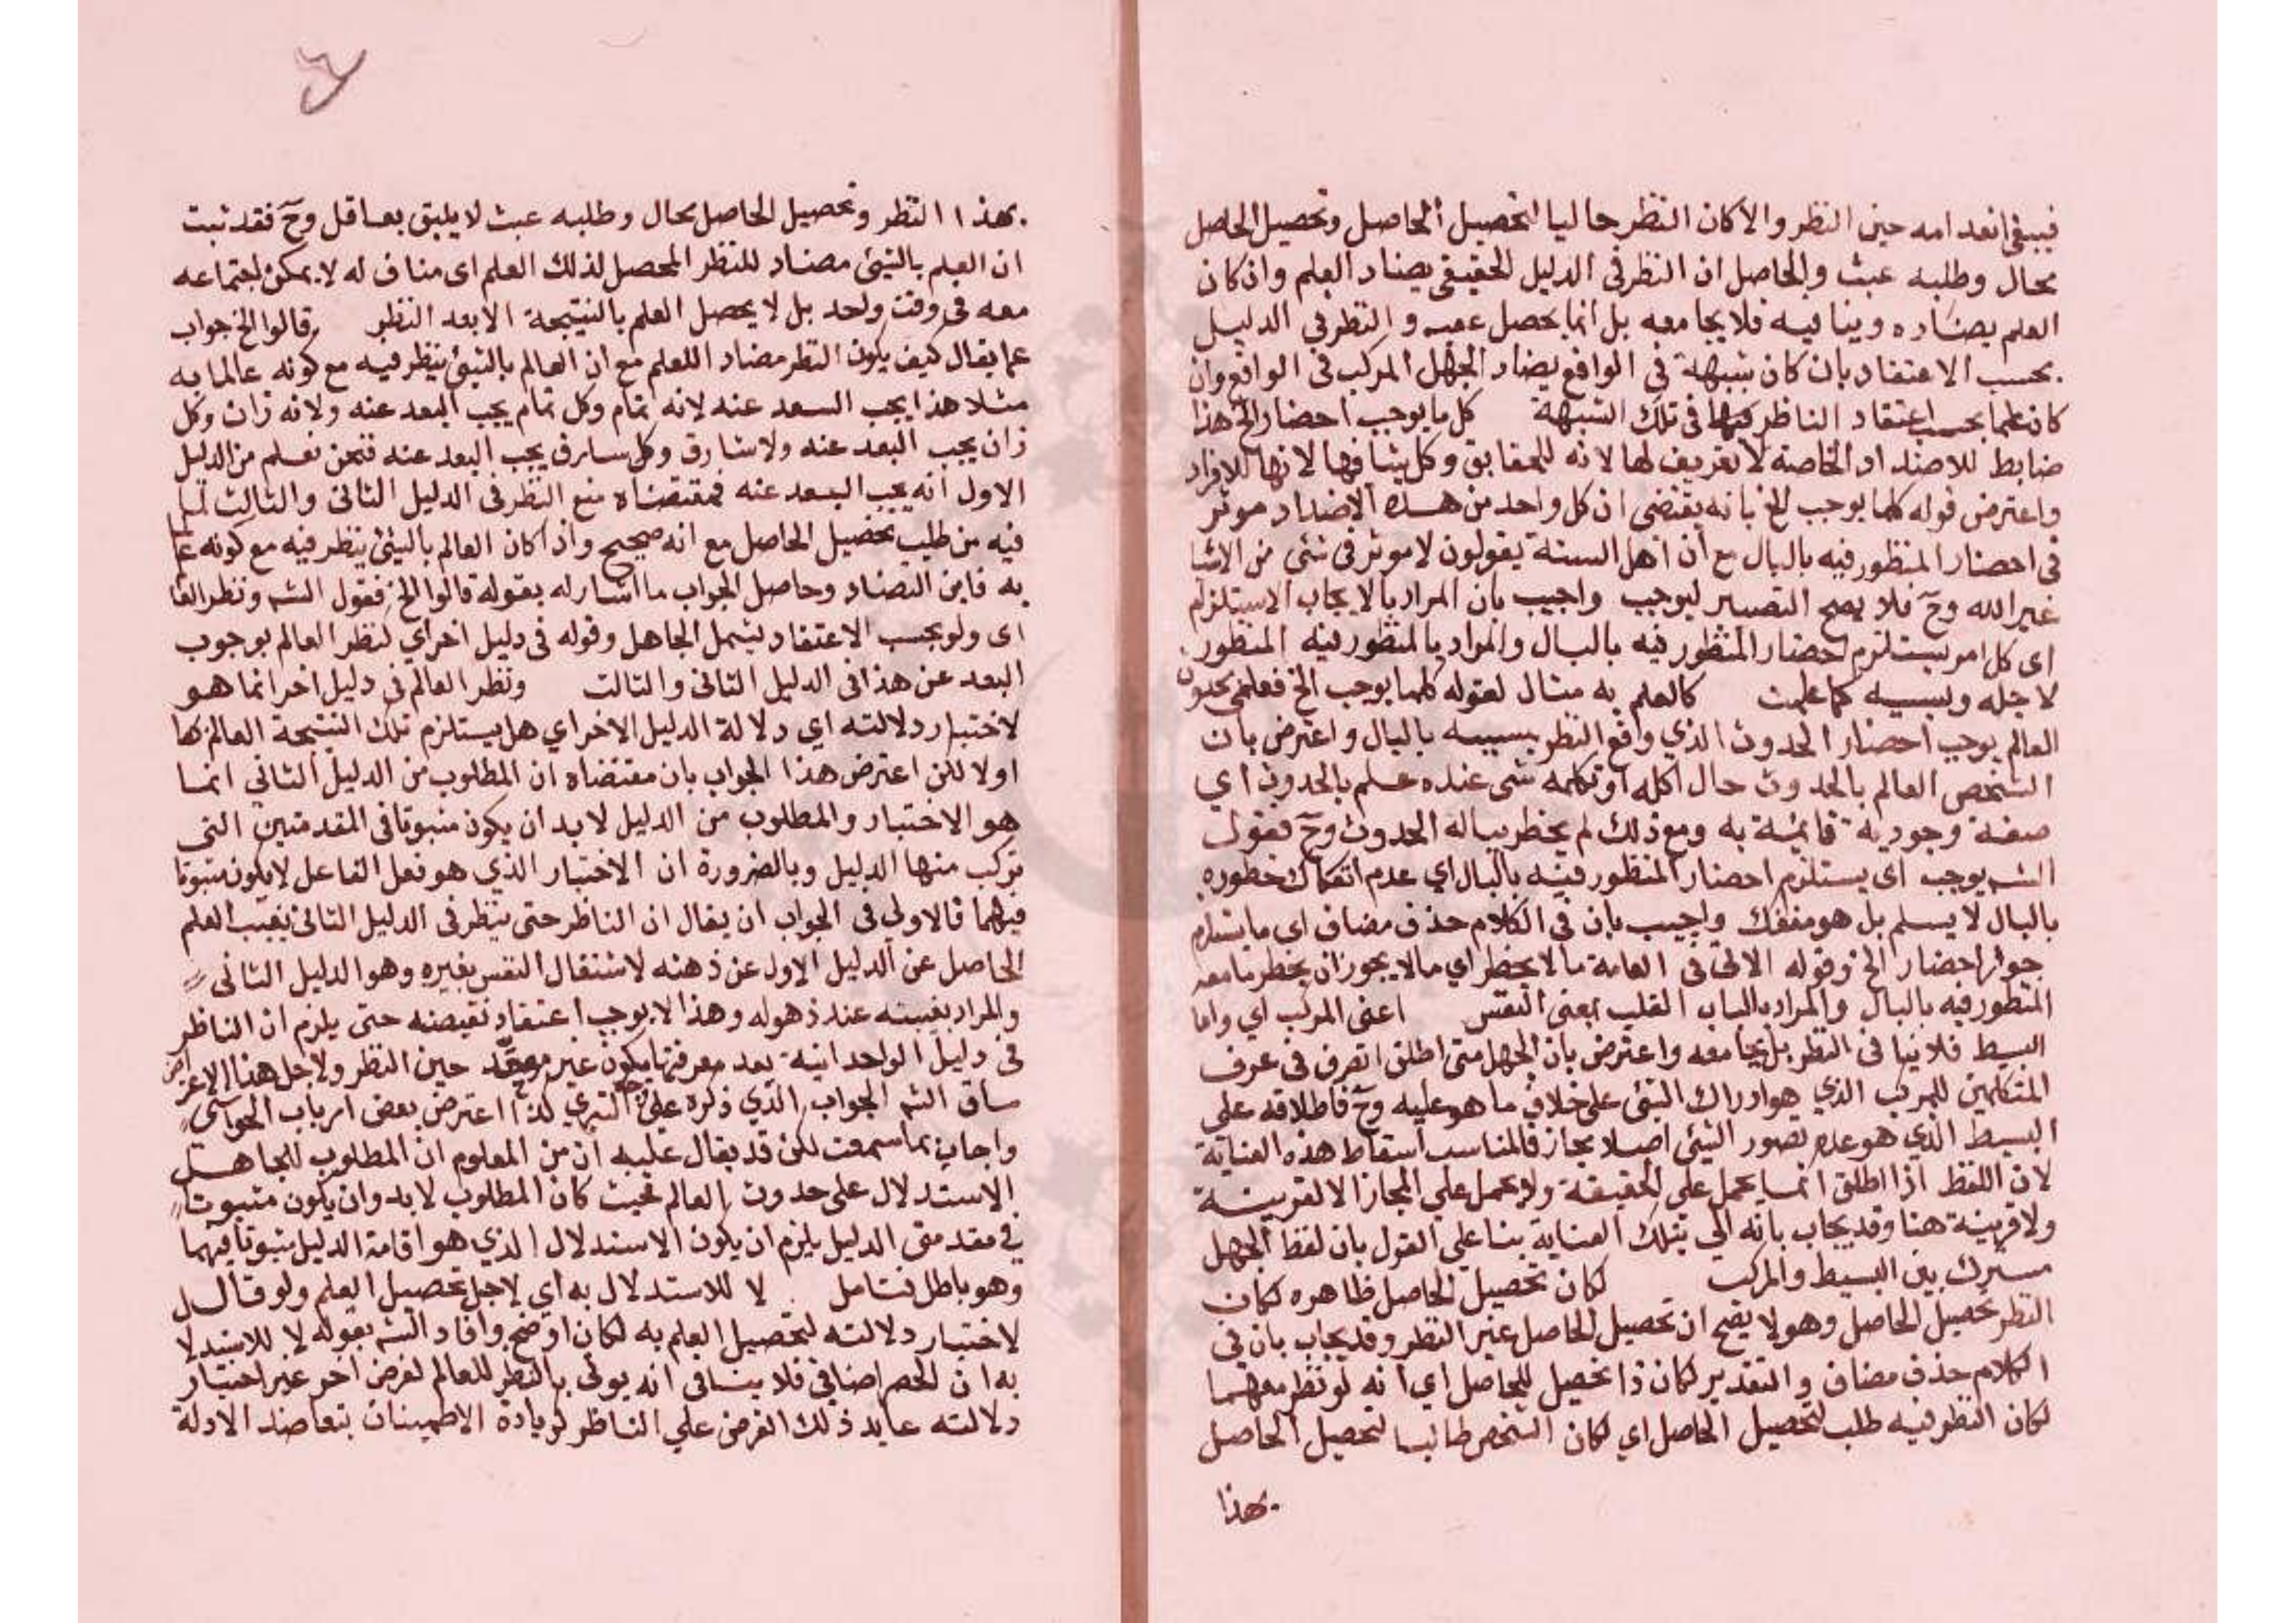 فينبغي انعدامه حين النظر والا كان النظر حاليا لتحصيل الحاصل وتحصيل الحاصل
محال وطلبه عبث والحاصل ان النظر في الدليل الحقيقي يضاد العلم وان كان
العلم يضاده وينافيه فلا يجامعه بل انما يحصل عقبه والنظر في الدليل
بحسب الاعتقاد بان كان شبهة في الواقع يضاد الجهل المركب في الواقع وان
كان علما بحسب اعتقاد الناظر في تلك الشبهة كل ما يوجب احضار الخ هذا
ضابط للاضداد الخاصة لا تعريف لها لانه للحقايق وكل ينافيها لانها للافراد
واعترض قوله كلما يوجب الخ بانه يقتضي ان كل واحد من هذه الاضداد موثر
في احضار المنظور فيه بالبال مع ان اهل السنة يقولون لا موثر في شئ من الاشيا
غير الله وح فلا يصح التعبير ليوجب واجيب بان المراد بالايجاب الاستلزام
اى كل امر يستلزم احضار المنظور فيه بالبال والمراد بالمنظور فيه المنظور
لاجله وبسببه كما علمت كالعلم به مثال لقوله كلما يوجب الخ فعلمي بحدوث
العالم يوجب احضار الحدوث الذي واقع النظر بسببه بالبال واعترض بان
الشخص العالم بالحدوث حال اكله او تكلمه شي عنده علم بالحدوث اي
صفة وجودية قائمة به ومع ذلك لم يخطر بباله الحدوث وح فقول
الشم يوجب اى يستلزم احضار المنظور فيه بالبال اي عدم انفكاك خطوره
بالبال لا يسلم بل هو منفك واجيب بان في الكلام حذف مضاف اى ما يستلزم
جواز احضار الخ وقوله الاتى في العامة مالا يخطر اي مالا يجوز ان يخطر ما معه
المنظور فيه بالبال والمراد بالبال القلب بمعنى النفس اعنى المركب اي واما
البسيط فلا ينافى النظر بل يجامعه واعترض بان الجهل متى اطلق انصرف فى عرف
المتكلمين للمركب الذي هو ادراك الشئ على خلاف ما هو عليه وح فاطلاقه على
البسيط الذي هو عدم تصور الشئ اصلا مجاز فالمناسب اسقاط هذه العناية
لان اللفظ اذا اطلق انما يحمل على الحقيقة ولا يحمل علي المجاز الا لقرينة
ولا قرينة هنا وقد يجاب بانه اتي بتلك العناية بنا علي القول بان لفظ الجهل
مشترك بين البسيط والمركب لكان تحصيل الحاصل ظاهره لكان
النظر تحصيل الحاصل وهو لا يصح ان تحصيل الحاصل غير النظر وقد يجاب بان في
الكلام حذف مضاف والتقدير لكان ذا تحصيل للحاصل اي انه لو نظر معهما
لكان النظر فيه طلب لتحصيل الحاصل اي لكان الشخص طالبا لتحصيل الحاصل
بهذا
بهذا النظر وتحصيل الحاصل محال وطلبه عبث لا يليق بعاقل وح فقد ثبت
ان العلم بالشئ مضاد للنظر المحصل لذلك العلم اى مناف له لا يمكن اجتماعه
معه في وقت واحد بل لا يحصل العلم بالنتيجة الا بعد النظر قالوا الخ جواب
عما يقال كيف يكون النظر مضاد اللعلم مع ان العالم بالشئ ينظر فيه مع كونه عالما به
مثلا هذا يجب البعد عنه لانه تمام وكل تمام يجب البعد عنه ولانه زان وكل
زان يجب البعد عنه ولا سارق وكل سارق يجب البعد عنه فنحن نعلم من الدليل
الاول انه يجب البعد عنه فمقتضاه منع النظر في الدليل الثانى والثالث لما
فيه من طلب تحصيل الحاصل مع انه صحيح واذا كان العالم بالشئ ينظر فيه مع كونه عالما
به فاين التضاد وحاصل الجواب ما اشار له بقوله قالوا الخ فقول الشم ونظر العا
اى ولو بحسب الاعتقاد ليشمل الجاهل وقوله في دليل اخر اي لنظر العالم بوجوب
البعد عن هذا فى الدليل الثانى والثالث ونظر العالم في دليل اخر انما هو
لاختبار دلالته اي دلالة الدليل الاخر اي هل يستلزم تلك النتيجة العالم بها
اولا لكن اعترض هذا الجواب بان مقتضاه ان المطلوب من الدليل الثاني انما
هو الاختبار والمطلوب من الدليل لابد ان يكون مثبوتا فى المقدمتين التى
تركب منها الدليل وبالضرورة ان الاختبار الذي هو فعل الفاعل لا يكون مثبوتا
فيهما فالاولى فى الجواب ان يقال ان الناظر حتى ينظر فى الدليل الثانى يغيب العلم
الحاصل عن الدليل الاول عن ذهنه لاشتغال النفس بغيره وهو الدليل الثانى
والمراد بغيبته عند ذهوله وهذا لا يوجب اعتقاد نقيضه حتى يلزم ان الناظر
فى دليل الواحدانية بعد معرفتها يكون غير موحد حين النظر ولاجل هذا الاعتراض
ساق الشم الجواب الذي ذكره على وجه التبري كذا اعترض بعض ارباب الحواشي
واجاب بما سمعت لكن قد يقال عليه ان من المعلوم ان المطلوب للجاهل
الاستدلال على حدوث العالم فحيث كان المطلوب لابد وان يكون مثبوتا
في مقدمتى الدليل يلزم ان يكون الاستدلال الذي هو اقامة الدليل مثبوتا فيهما
وهو باطل فتامل لا للاستدلال به اي لاجل تحصيل العلم ولو قال
لاختبار دلالته لتحصيل العلم به لكان اوضح وافاد الشم بقوله لا للاستدلا
به ان الحصر اضافي فلا ينافى انه يوتى بالنظر للعالم لغرض اخر غير اختبار
دلالته عايد ذلك الغرض علي الناظر لزيادة الاطمينان بتعاضد الادلة